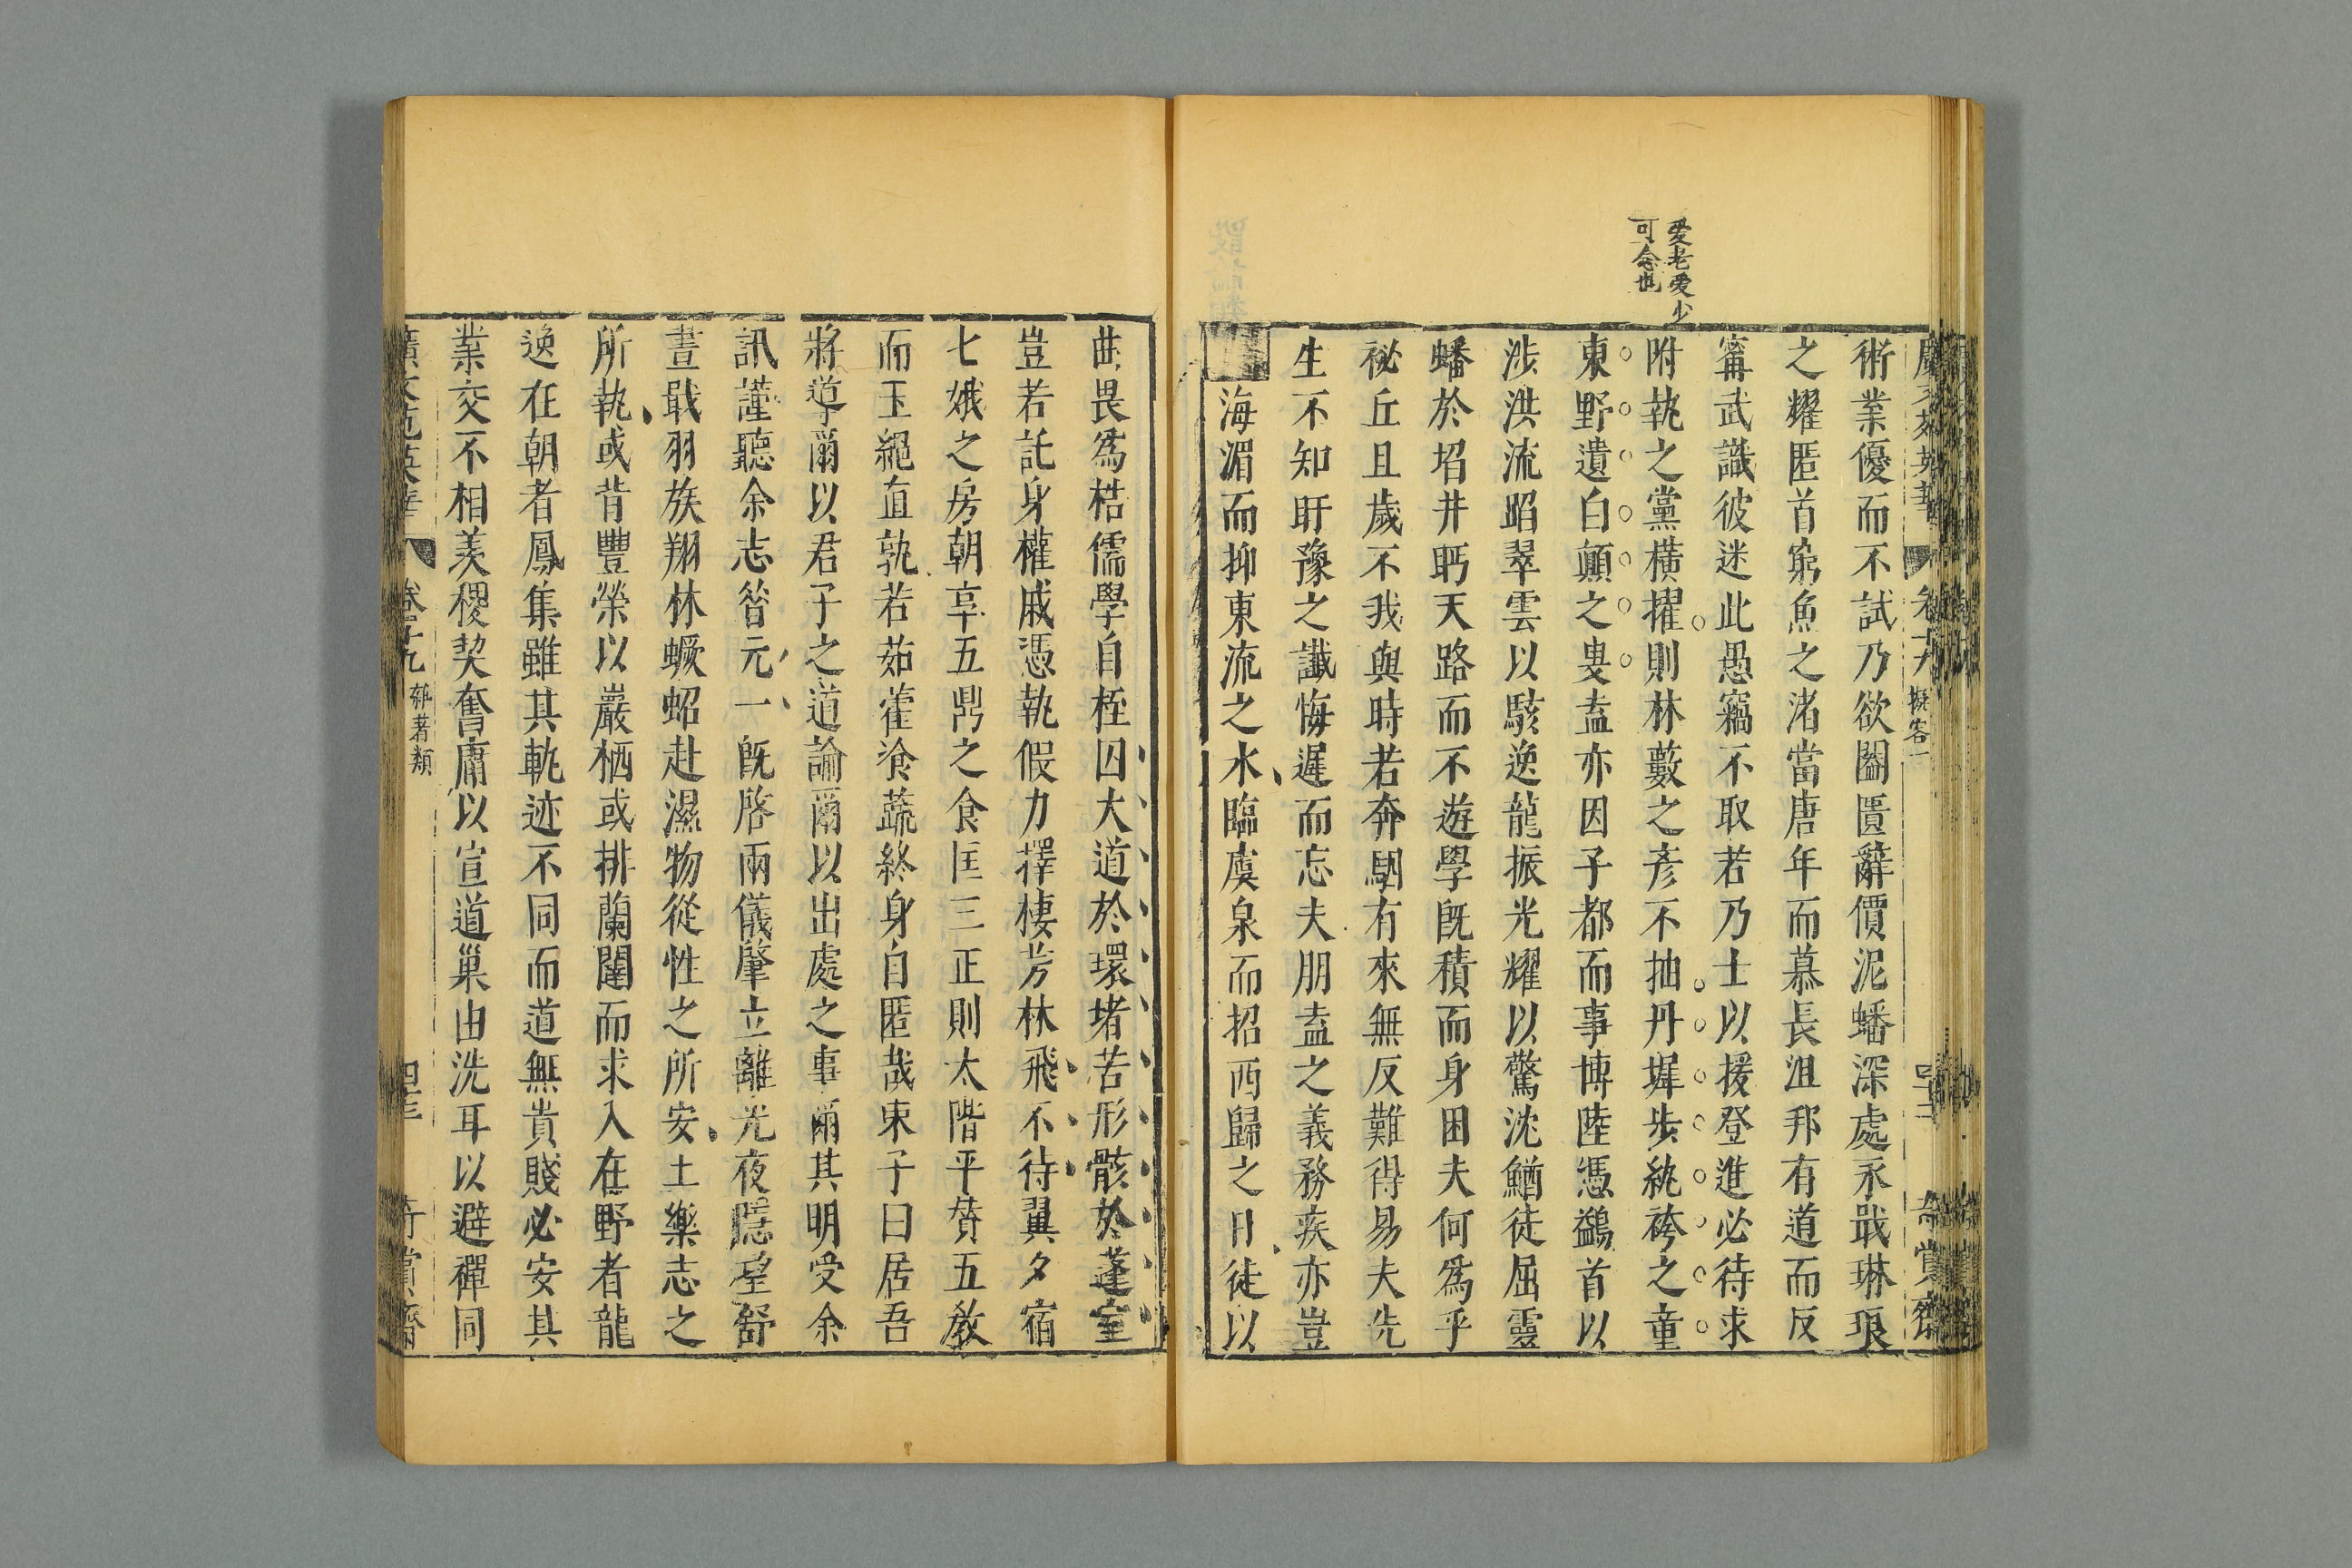 愛老愛少
可念也
術業優而不試乃欲闔匱辭價泥蟠深處永戢琳琅
之耀匿首窮魚之渚當唐年而慕長沮邦有道而反
甯武識彼迷此愚竊不取若乃士以援登進必待求
附執之黨橫擢則林藪之彥不抽丹墀步紈袴之童
東野遺白顛之叟盍亦因子都而事博陸憑鷁首以
涉洪流蹈翠雲以駭逸龍振光耀以驚沈鰌徒屈靈
蟠於埳井眄天路而不遊學旣積而身困夫何爲乎
祕丘且歲不我與時若奔駟有來無反難得易夫先
生不知盱豫之讖悔遲而忘夫朋盍之義務疾亦豈
海湄而抑東流之水臨虞泉而招西歸之日徒以
曲畏爲梏儒學自桎囚大道於環堵苦形骸於蓬室
豈若託身權戚憑執假力擇棲芳林飛不待翼夕宿
七娥之房朝享五鼎之食匡三正則太階平贊五教
而玉繩直孰若茹藿飡蔬終身自匿哉束子曰居吾
將導爾以君子之道諭爾以出處之事爾其明受余
訊謹聽余志昝元一旣啓兩儀肇立離光夜隱望舒
晝戢羽族翔林蟩蛁赴濕物從性之所安土樂志之
所執或背豐榮以巖栖或排蘭闥而求入在野者龍
逸在朝者鳳集雖其軌迹不同而道無貴賤必安其
業交不相羨稷契奮庸以宣道巢由洗耳以避禪同
廣文苑英華 卷十九 雜著類